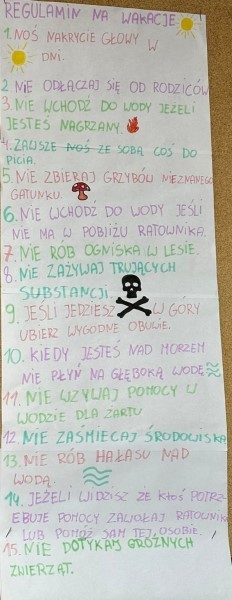 REGULAMIN NA WAKACJE
1. NOŚ NAKRYCIE GŁOWY W
DNI.
2 NIE ODŁĄCZAJ SIĘ OD RODZICÓW
3. NIE WCHODŹ DO WODY JEŻELI
JESTEŚ NAGRZANY.
4. ZAWSZE NOŚ ZE SOBĄ COŚ DO
PICIA.
5. NIE ZBIERAJ GRZYBÓW NIEZNANEGO
GATUNKU.
6. NIE WCHODŹ DO WODY JEŚLI
NIE MA W POBLIŻU RATOWNIKA.
7. NIE RÓB OGNISKA W LESIE.
8. NIE ZAŻYWAJ TRUJĄCYCH
SUBSTANCJI.
9. JEŚLI JEDZIESZ W GÓRY
UBIERZ WYGODNE OBUWIE.
10. KIEDY JESTEŚ NAD MORZEM
NIE PŁYŃ NA GŁĘBOKĄ WODĘ
11. NIE WZYWAJ POMOCY W
WODZIE DLA ŻARTU
12. NIE ZAŚMIECAJ ŚRODOWISKA
13. NIE RÓB HAŁASU NAD
WODĄ.
14. JEŻELI WIDZISZ ŻE KTOŚ POTRZ-
EBUJE POMOCY ZAWOŁAJ RATOWNIKA
/ LUB POMÓŻ SAM TEJ OSOBIE. /
15. NIE DOTYKAJ GROŹNYCH
ZWIERZĄT.